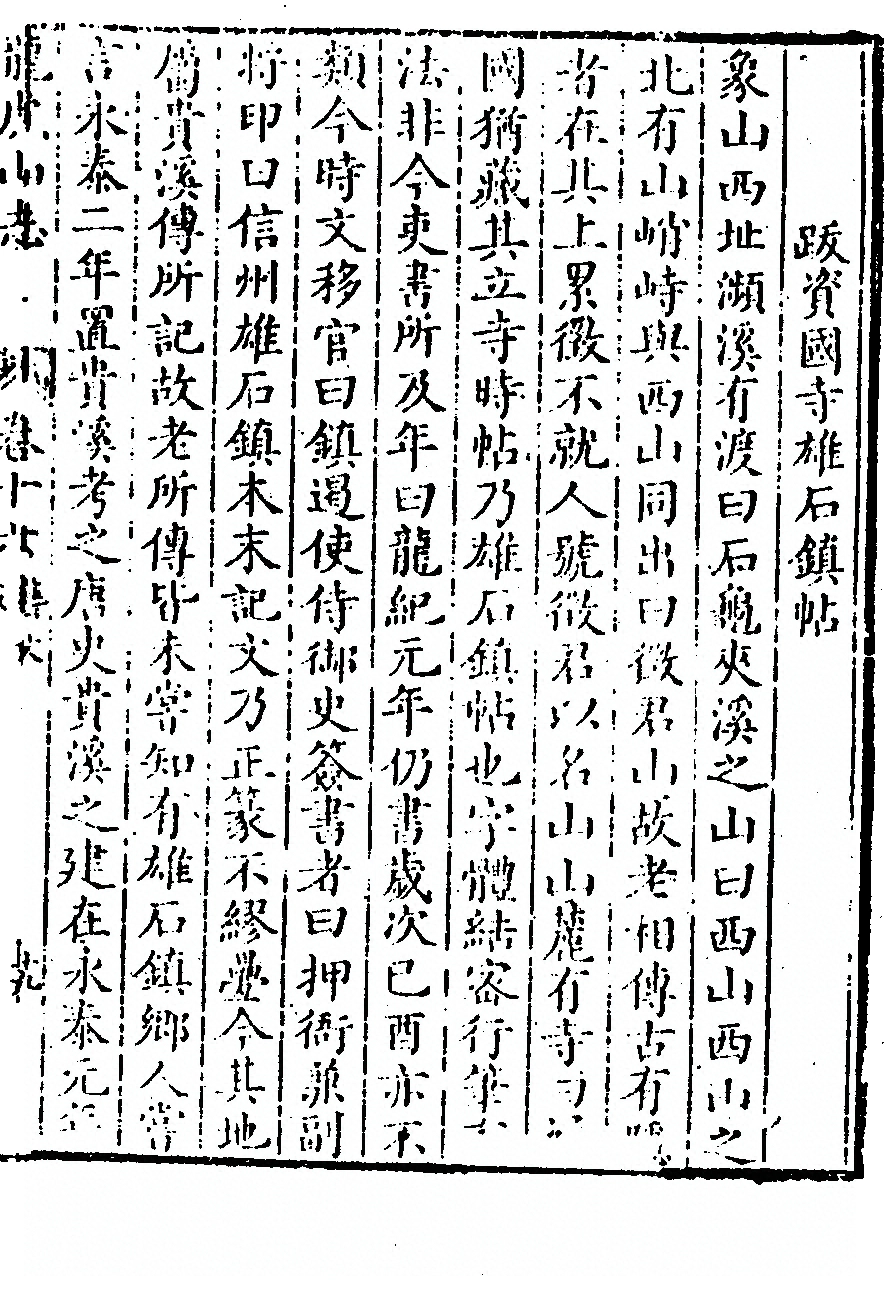 跋資國寺雄石鎮帖
象山西址瀕溪有渡曰石龜夾溪之山曰西山西山之
北有山峭峙與西山同出曰徵君山故老相傳古有
者在其上累徵不就人號徵君以名山山麓有寺曰
國猶藏其立寺時帖乃雄石鎮帖也字體結密行筆
法非今吏書所及年曰龍紀元年仍書歲次已酉亦不
類今時文移官曰鎮遏使侍御史簽書者曰押衙兼副
將印曰信州雄石鎮木末記文乃正篆不繆疊今其地
屬貴溪傳所記故老所傳皆未甞知有雄石鎮鄉人甞
言永泰二年置貴溪考之唐史貴溪之建在永泰元年
龍虎山志 卷十 藝文 十九